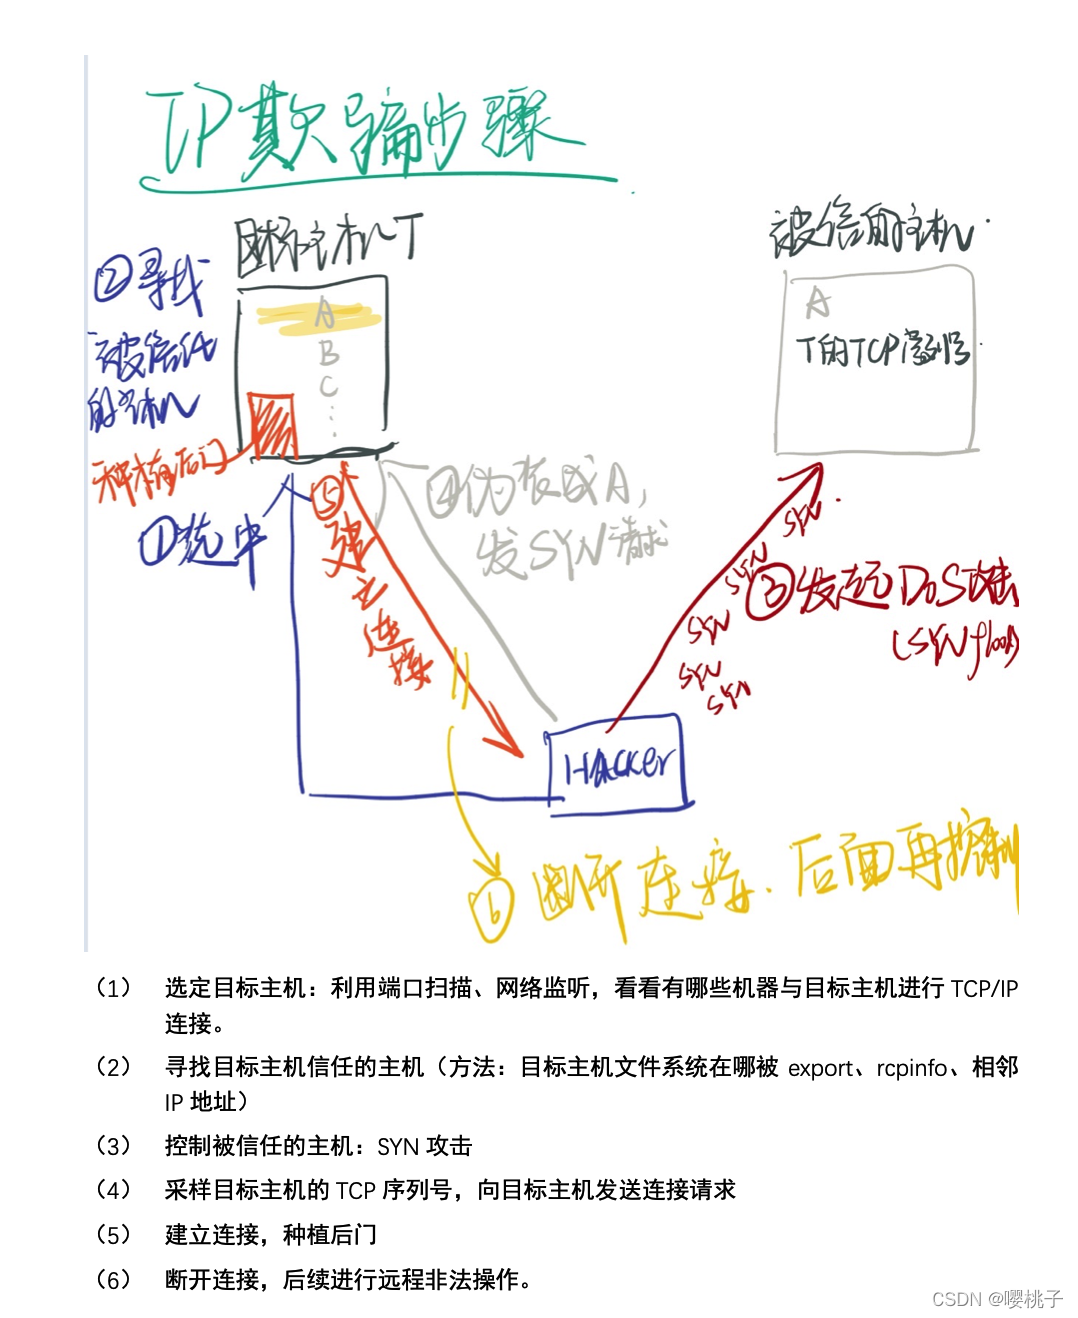 IP欺骗步骤
目标主机T
被信的主机
②寻找
被信任
的主机
A
B
C
...
A
T的TCP序列号
种植后门
①选中
⑤建立连接
④伪装成A,
发SYN请求
SYN
SYN
SYN
SYN
SYN
③发起DoS攻击
(SYN flood)
Hacker
⑥断开连接、后面再控制
(1) 选定目标主机：利用端口扫描、网络监听，看看有哪些机器与目标主机进行 TCP/IP
连接。
(2) 寻找目标主机信任的主机（方法：目标主机文件系统在哪被 export、rcpinfo、相邻
IP 地址）
(3) 控制被信任的主机：SYN 攻击
(4) 采样目标主机的 TCP 序列号，向目标主机发送连接请求
(5) 建立连接，种植后门
(6) 断开连接，后续进行远程非法操作。
CSDN @嘤桃子